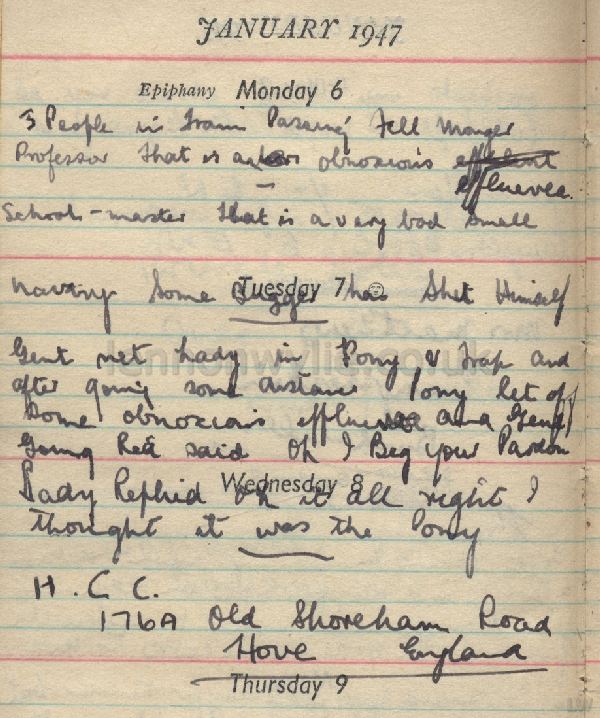 JANUARY 1947
Epiphany Monday 6
3 People in Train Passing Fell Monger
Professor that is a obnoxious
effluevea.
School-master that is a very bad smell
Tuesday 7
navvy Some Bugger has Shit Himself
Gent met Lady in Pony & Trap and
after going some distance Pony let of
Some obnoxious and Gent
Going Red said Oh I Beg your Pardon
Wednesday 8
Lady Replied Oh it all right I
thought it was the Pony
H. C. C.
176A Old Shoreham Road
Hove England
Thursday 9